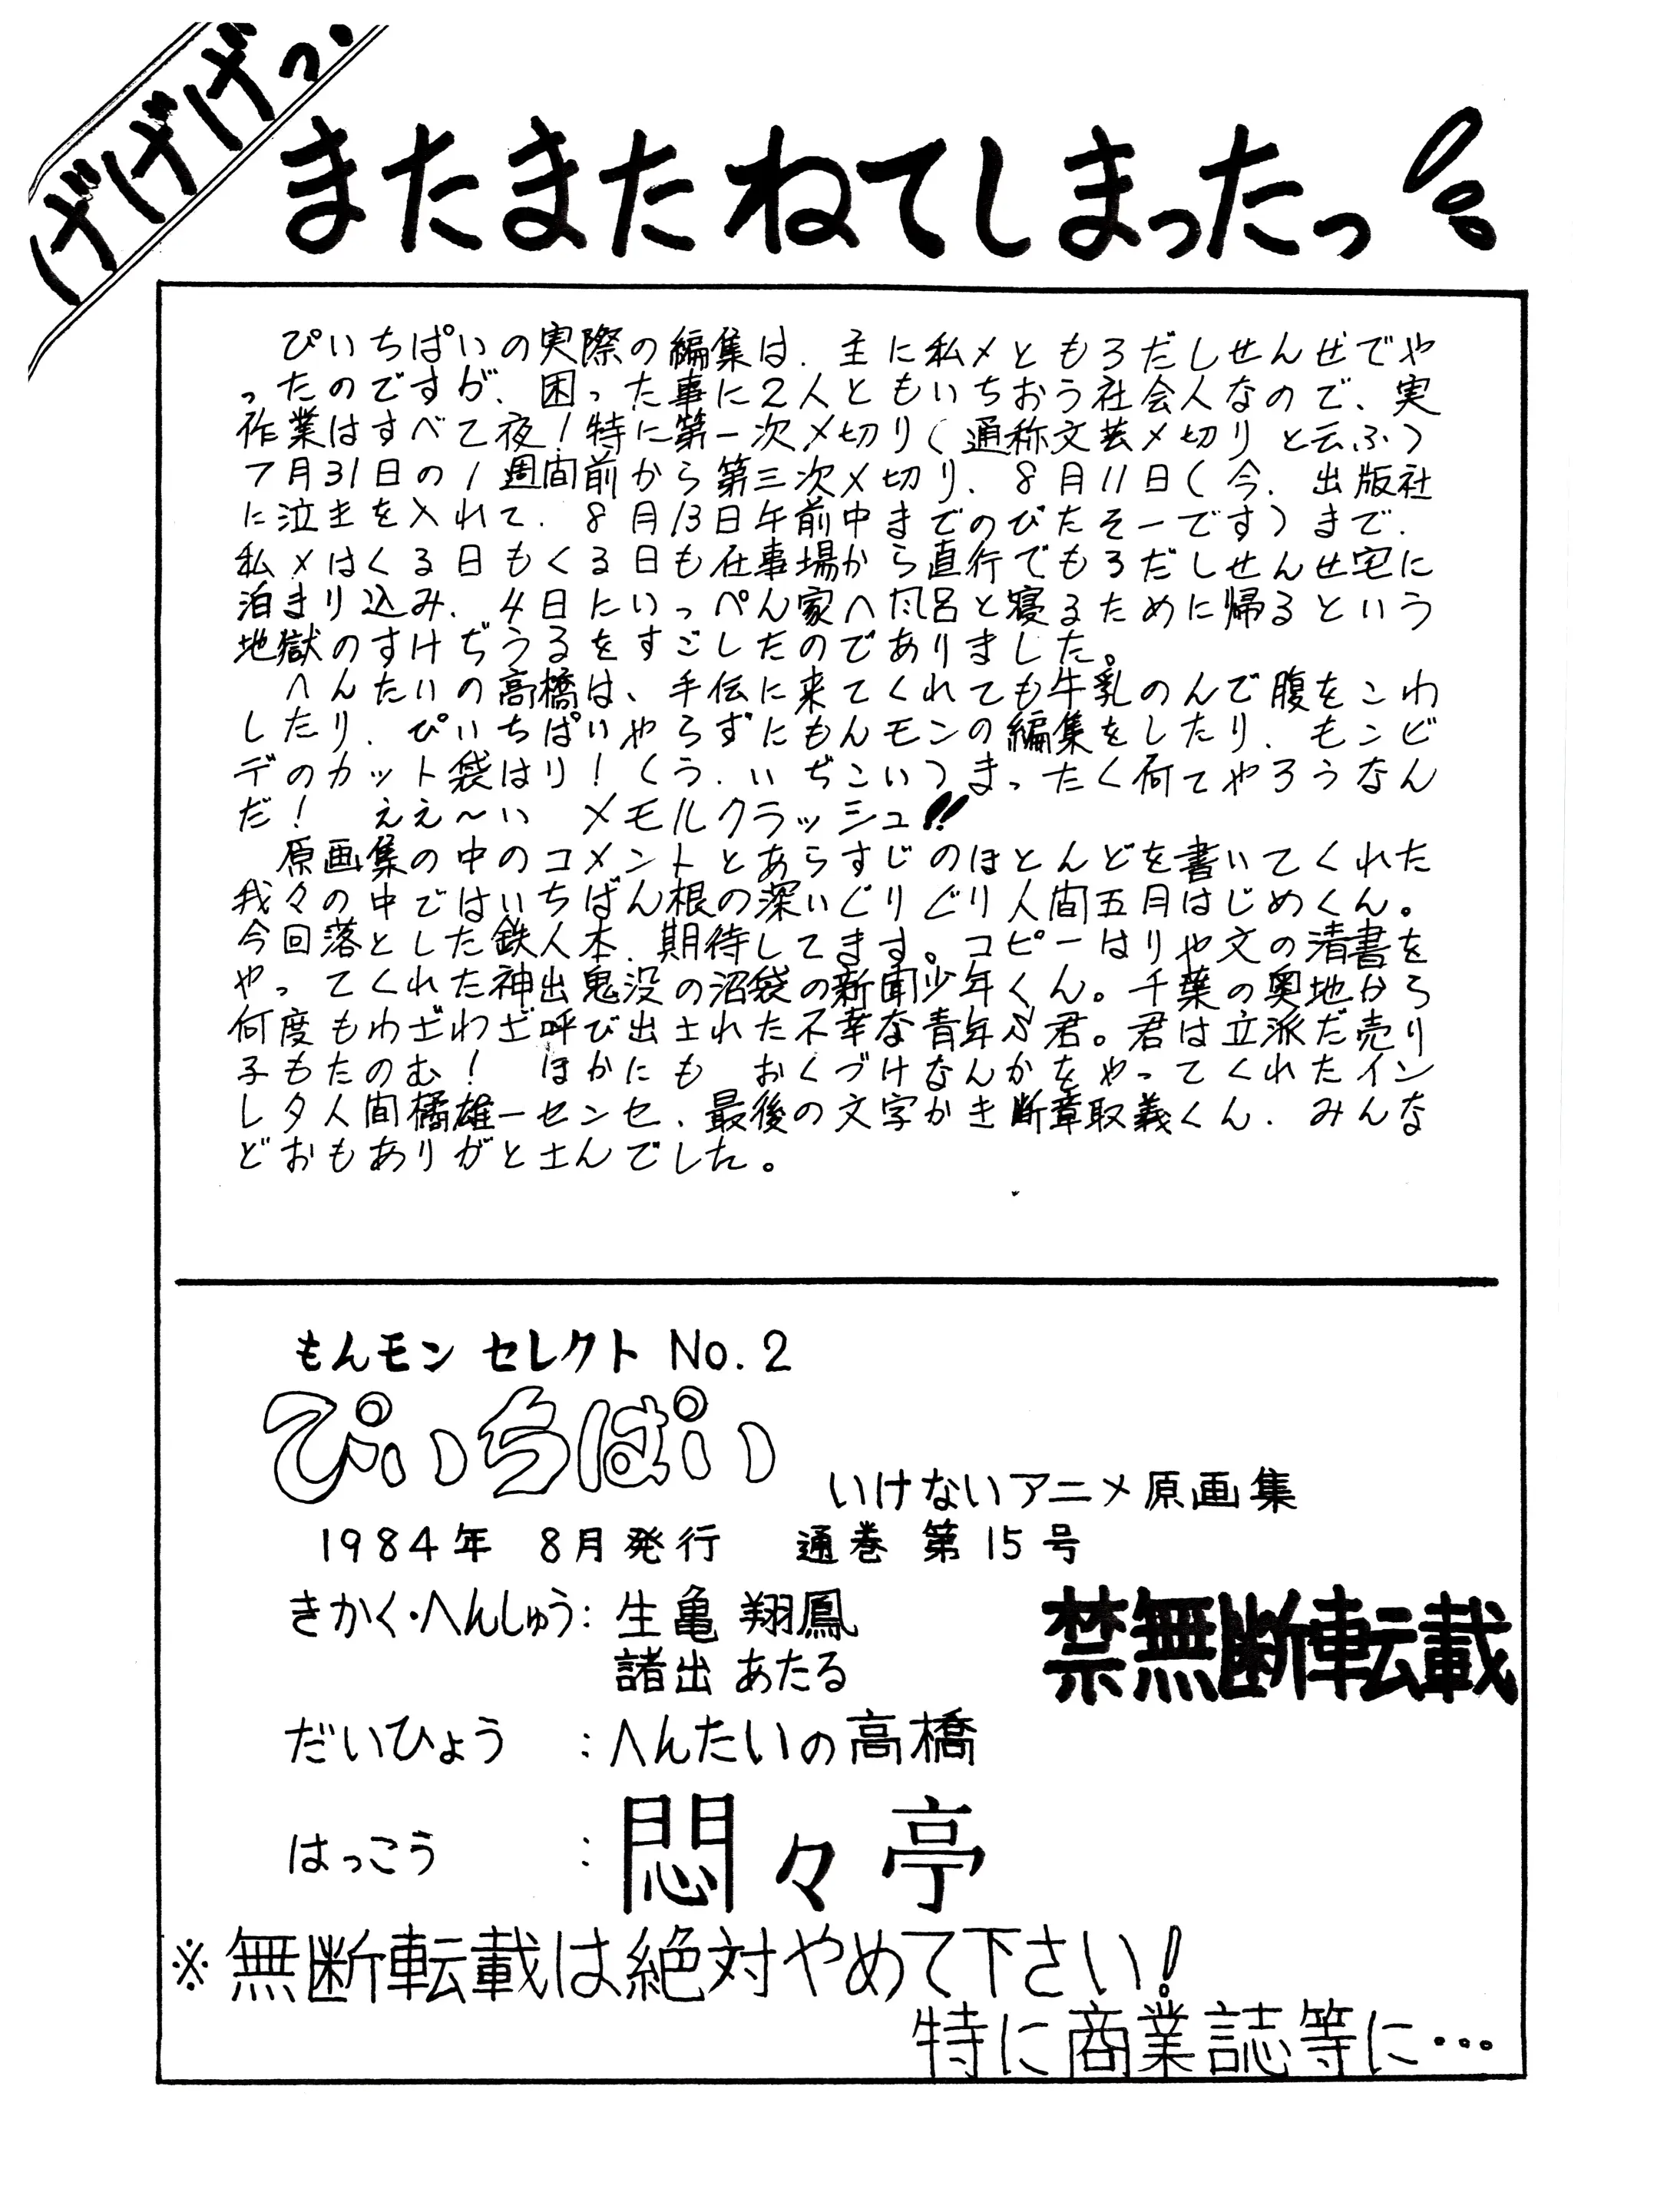 げげげっ
またまたねてしまったっ!
ぴいちぱいの実際の編集は、主に私メともろだしせんせでや
ったのですが、困った事に2人ともいちおう社会人なので、実
作業はすべて夜!特に第一次〆切り(通称文芸〆切りと云ふ)
7月31日の1週間前から第三次〆切り、8月11日(今、出版社
に泣きを入れて、8月13日午前中までのびたそーです)まで、
私メはくる日もくる日も仕事場から直行でもろだしせんせ宅に
泊まり込み、4日にいっぺん家へ風呂と寝るために帰るという
地獄のすけぢうるをすごしたのでありました。
へんたいの高橋は、手伝に来てくれても牛乳のんで腹をこわ
したり、ぴいちぱいやらずにもんモンの編集をしたり、モンビ
デのカット袋はり!くう、いぢこいつまったく何てやろうなん
だ! ええ〜い メモルクラッシュ!!
原画集の中のコメントとあらすじのほとんどを書いてくれた
我々の中ではいちばん根の深いぐりぐり人間五月はじめくん。
今回落とした鉄人本、期待してます。コピーはりや文の清書を
やってくれた神出鬼没の沼袋の新聞少年くん。千葉の奥地から
何度もわざわざ呼び出された不幸な青年ぶ君。君は立派だ売り
子もたのむ! ほかにも おくづけなんかをやってくれたイン
レタ人間橘雄一センセ、最後の文字かき断章取義くん、みんな
どおもありがとさんでした。
もんモン セレクト No.2
ぴいちぱい
いけないアニメ原画集
1984年 8月発行 通巻 第15号
きかく・へんしゅう:生亀 翔鳳
諸出 あたる
禁無断転載
だいひょう :へんたいの高橋
はっこう :悶々亭
※無断転載は絶対やめて下さい!
特に商業誌等に…